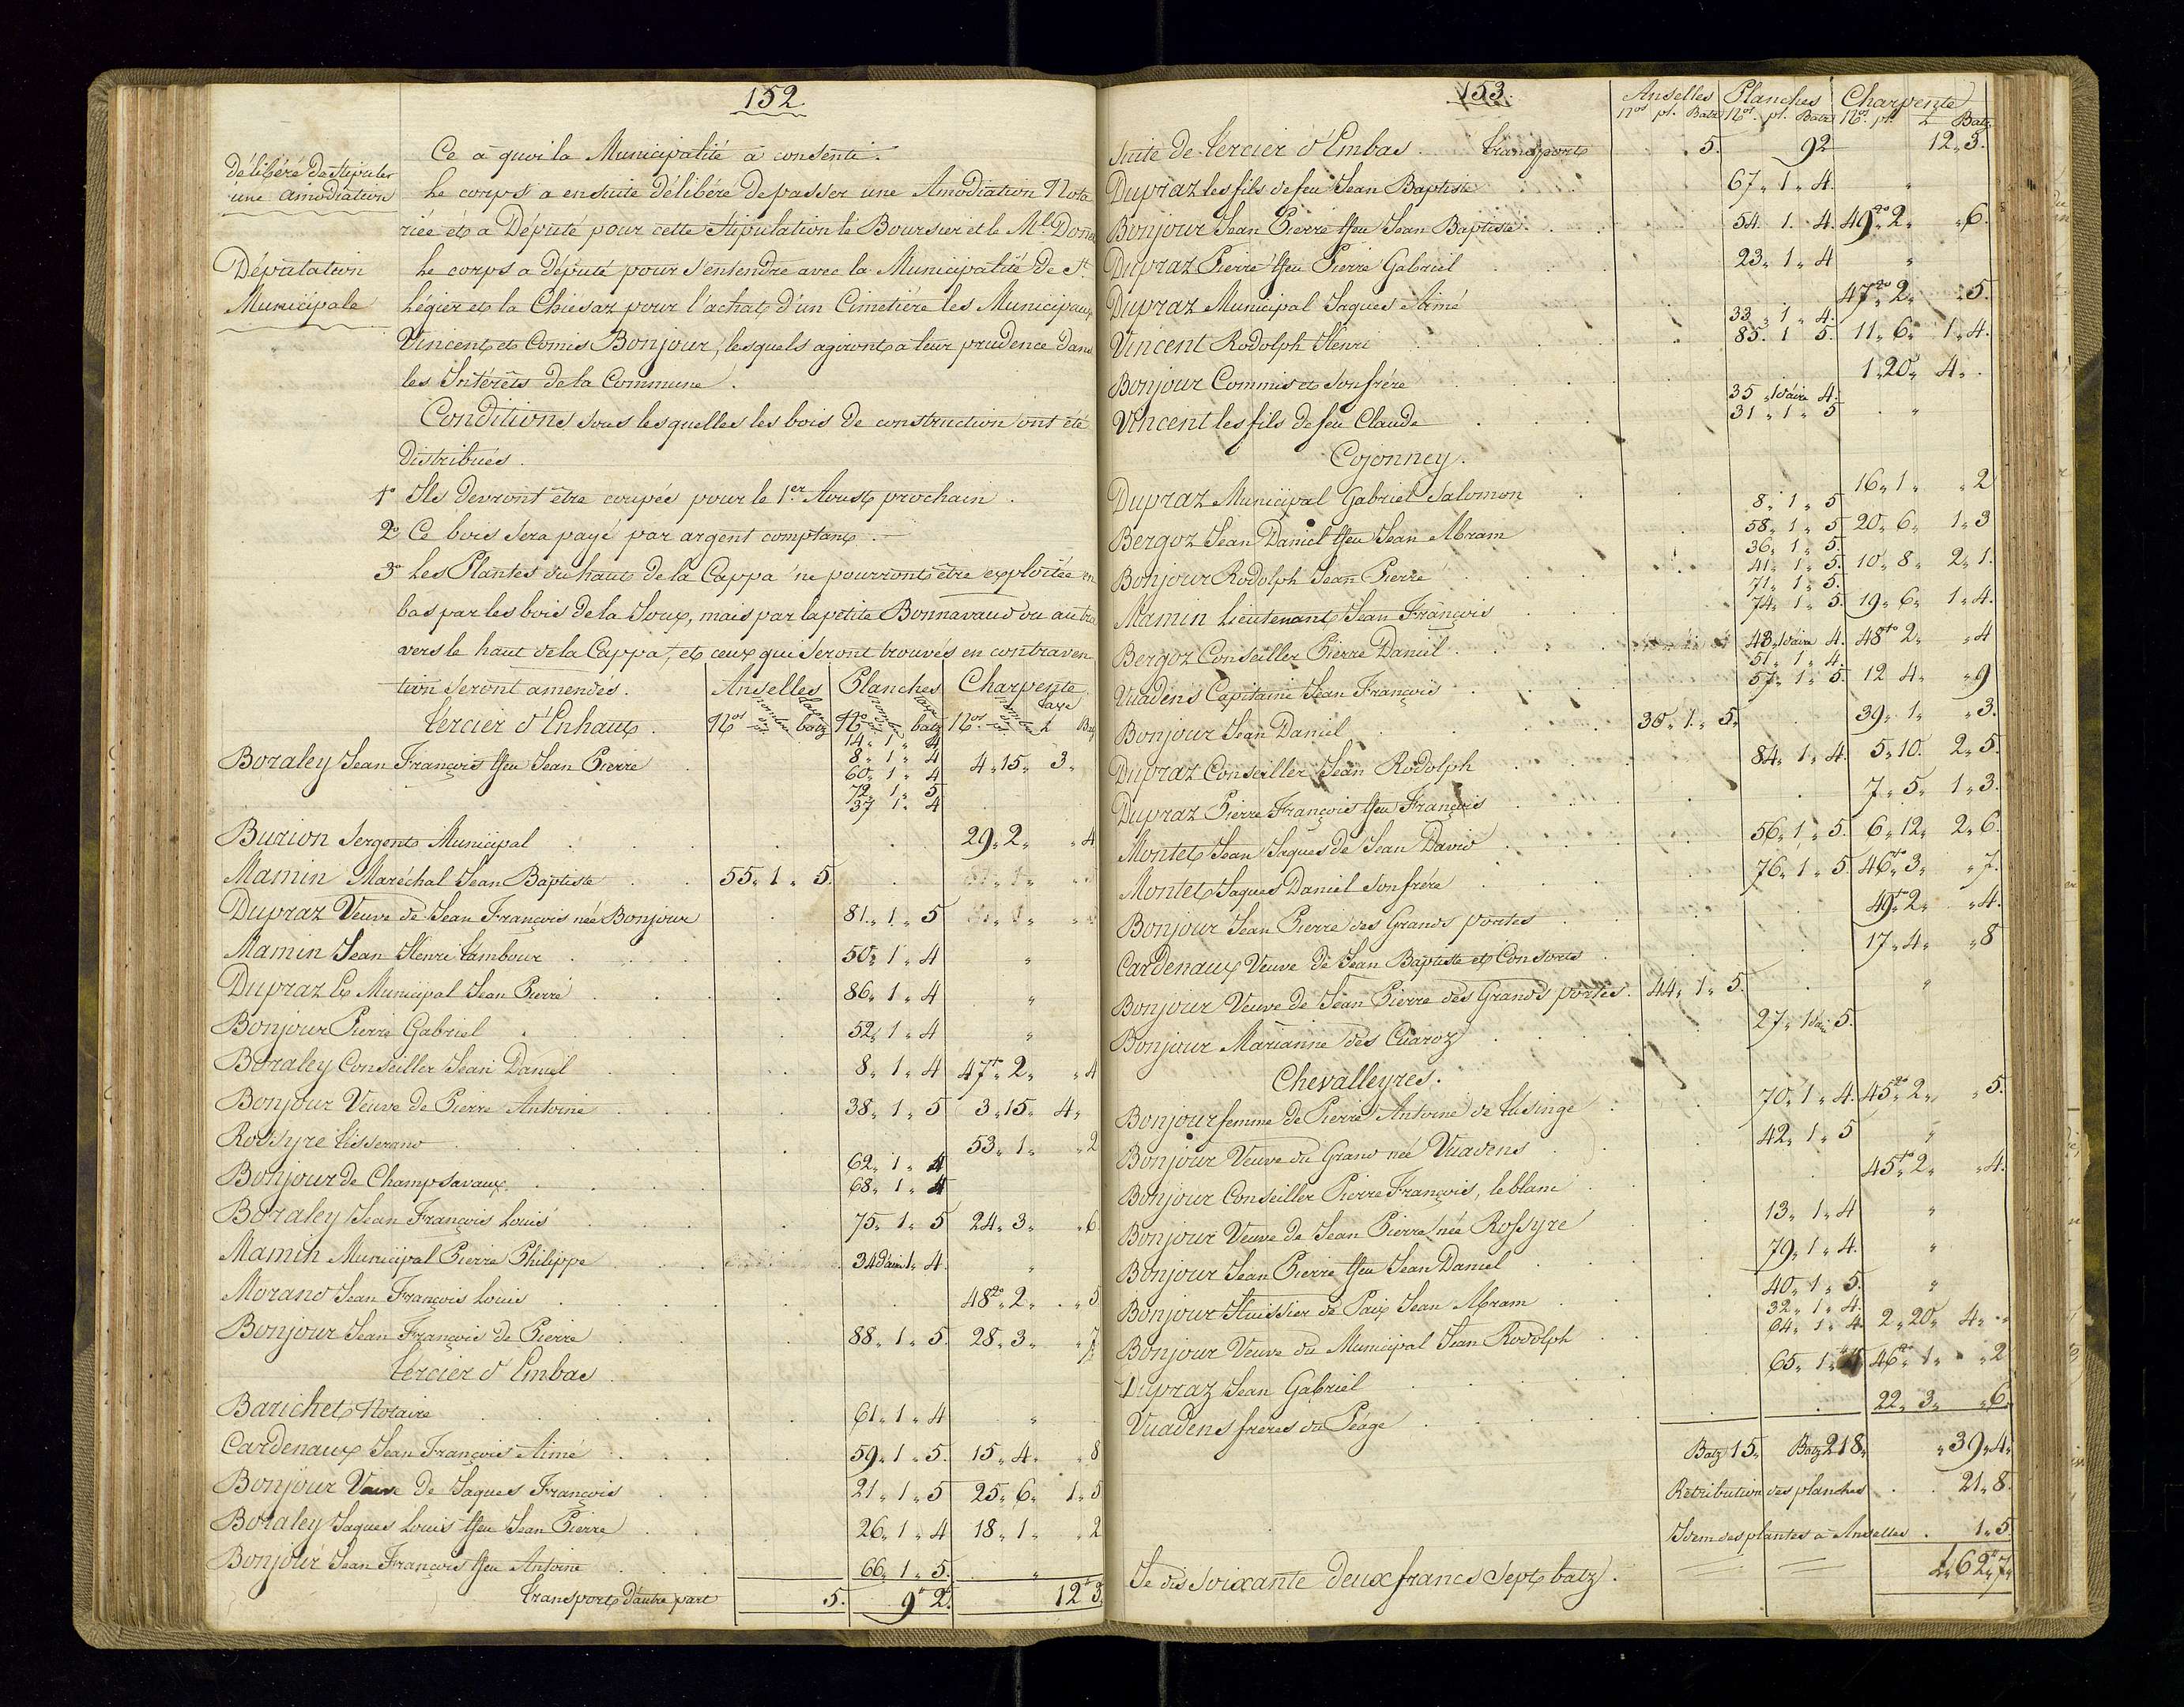 152
Ce à quoi la Municipalité à consenti.
délibéré de stipuler
une amodiation
Le corps a ensuite délibéré de passer une Amodiation Nota
riée et a Député pour cette stipulation le Boursier et le Mal. Donna
Députation
Municipale
Le corps a député pour s'entendre avec la Municipalité de St.
Légier et la Chiesaz pour l'achat d'un Cimetière les Municipaux
Vincent et Comis Bonjour, lesquels agiront a leur prudence dans
les Intérêts de la Commune.
Conditions sous lesquelles les bois de construction ont été
distribués.
1° Ils devront être coupés pour le 1.er Aoust prochain.
2° Ce bois sera payé par argent comptant.
3° Les Plantes du haut de la Cappa ne pourront être exploitée en
bas par les bois de la Soux, mais par la petite Bonnavaud ou au tra
vers le haut de la Cappa, et ceux qui seront trouvés en contraven
tion seront amendés. Anselles Planches Charpente
Tercier d'Enhaut. Nos batz Nos batz Nos taxe L Bz
14" 1" 4
Boraley Jean François ffeu Jean Pierre 8" 1" 4 4" 15" 3"
60" 1" 4
72" 1" 5
37 1" 4
Burion Sergent Municipal 29" 2" "4
Mamin Maréchal Jean Baptiste 55" 1" 5.
Dupraz Veuve de Jean François née Bonjour 81" 1" 5
Mamin Jean Henri tambour 50" 1" 4 "
Dupraz Ex Municipal Jean Pierre 86" 1" 4 "
Bonjour Pierre Gabriel 52" 1" 4 "
Boraley Conseiller Jean Daniel 8" 1" 4 47to 2" "4
Bonjour Veuve de Pierre Antoine 38" 1" 5 3" 15" 4"
Rossyre tisserand 53" 1" "2
62" 1" 4
Bonjour de Champsavaux 68" 1" 4
Boraley Jean François Louis 75" 1" 5 24" 3" "6
Mamin Municipal Pierre Philippe 34 daire 1" 4 "
Morand Jean François Louis 48do 2" "5
Bonjour Jean François de Pierre 88" 1" 5 28" 3" "7
Tercier d'Embas
Barichet Notaire 61" 1" 4 "
Cardenaux Jean François Aimé 59" 1" 5. 15" 4" "8
Bonjour Veuve de Jaques François 21" 1" 5 25" 6" 1" 5
Boraley Jaques Louis ffeu Jean Pierre 26" 1" 4 18" 1" "2
Bonjour Jean François ffeu Antoine 66" 1" 5. "
Transport d'autre part 5. 9" 2. 12" 3
153.
Anselles Planches Charpente
Nos pl. Batz Nos. pl. Batz Nos. pl. L Batz
Suite de Tercier d'Embas. transport 5. 92 12" 3.
Dupraz les fils de feu Jean Baptiste 67" 1" 4. "
Bonjour Jean Pierre ffeu Jean Baptiste 54 1" 4. 49do 2" "6.
Dupraz Pierre ffeu Pierre Gabriel 23" 1" 4 "
Dupraz Municipal Jaques Aimé 33" 1" 4. 47do 2" "5.
Vincent Rodolph Henri 85. 1 5. 11" 6" 1" 4.
Bonjour Commis et son frére 35 "1 daire 4. 1" 20" 4" .
Vincent les fils de feu Claude 31" 1" 5 "
Cojonney.
Dupraz Municipal Gabriel Salomon 8" 1" 5 16" 1" "2
Bergoz Jean Daniel ffeu Jean Abram 58" 1" 5 20" 6" 1" 3
36" 1" 5.
Bonjour Rodolph Jean Pierre 41" 1" 5. 10" 8" 2" 1.
71" 1" 5.
Mamin Lieutenant Jean François 74" 1" 5. 19" 6" 1" 4.
Bergoz Conseiller Pierre Daniel 43" 1 daire 4. 48to 2" "4
51" 1" 4.
Vuadens Capitaine Jean François 57" 1" 5. 12 4" "9
Bonjour Jean Daniel 30" 1" 5" 39" 1" "3.
Dupraz Conseiller Jean Rodolph 84" 1" 4. 5" 10. 2" 5.
Dupraz Pierre François ffeu François 7" 5" 1" 3.
Montet Jean Jaques de Jean David 56" 1" 5. 6" 12" 2" 6.
Montet Jaques Daniel son frére 76" 1" 5. 46to 3" "7.
Bonjour Jean Pierre des Grands portes 49to 2" "4.
Cardenaux Veuve de Jean Baptiste et Consorts 17" 4" "8
Bonjour Veuve de Jean Pierre des Grands portes. 44" 1" 5. "
Bonjour Marianne des Cuaroz 27" 1 dai 5.
Chevalleyres.
Bonjour femme de Pierre Antoine de Tusinge 70" 1" 4. 45do 2" "5.
Bonjour Veuve du Grand née Vuadens 42" 1" 5 "
Bonjour Conseiller Pierre François, leblanc 45to 2" "4.
Bonjour Veuve de Jean Pierre née Rossyre 13" 1" 4 "
Bonjour Jean Pierre ffeu Jean Daniel 79" 1" 4. "
Bonjour Huissier de Paix Jean Abram 40" 1" 5. "
32" 1" 4.
Bonjour Veuve du Municipal Jean Rodolph 64" 1" 4 2" 20" 4" "
Dupraz Jean Gabriel 65" 1" 4 46do 1" "2
Vuadens fréres du Péage 22" 3" "6"
Batz 15" Batz 218" "39" 4"
Retribution des planches 21" 8.
Idem des plantes à Anselles. 1" 5.
Je dis soixante deux francs sept batz. L" 62" 7"